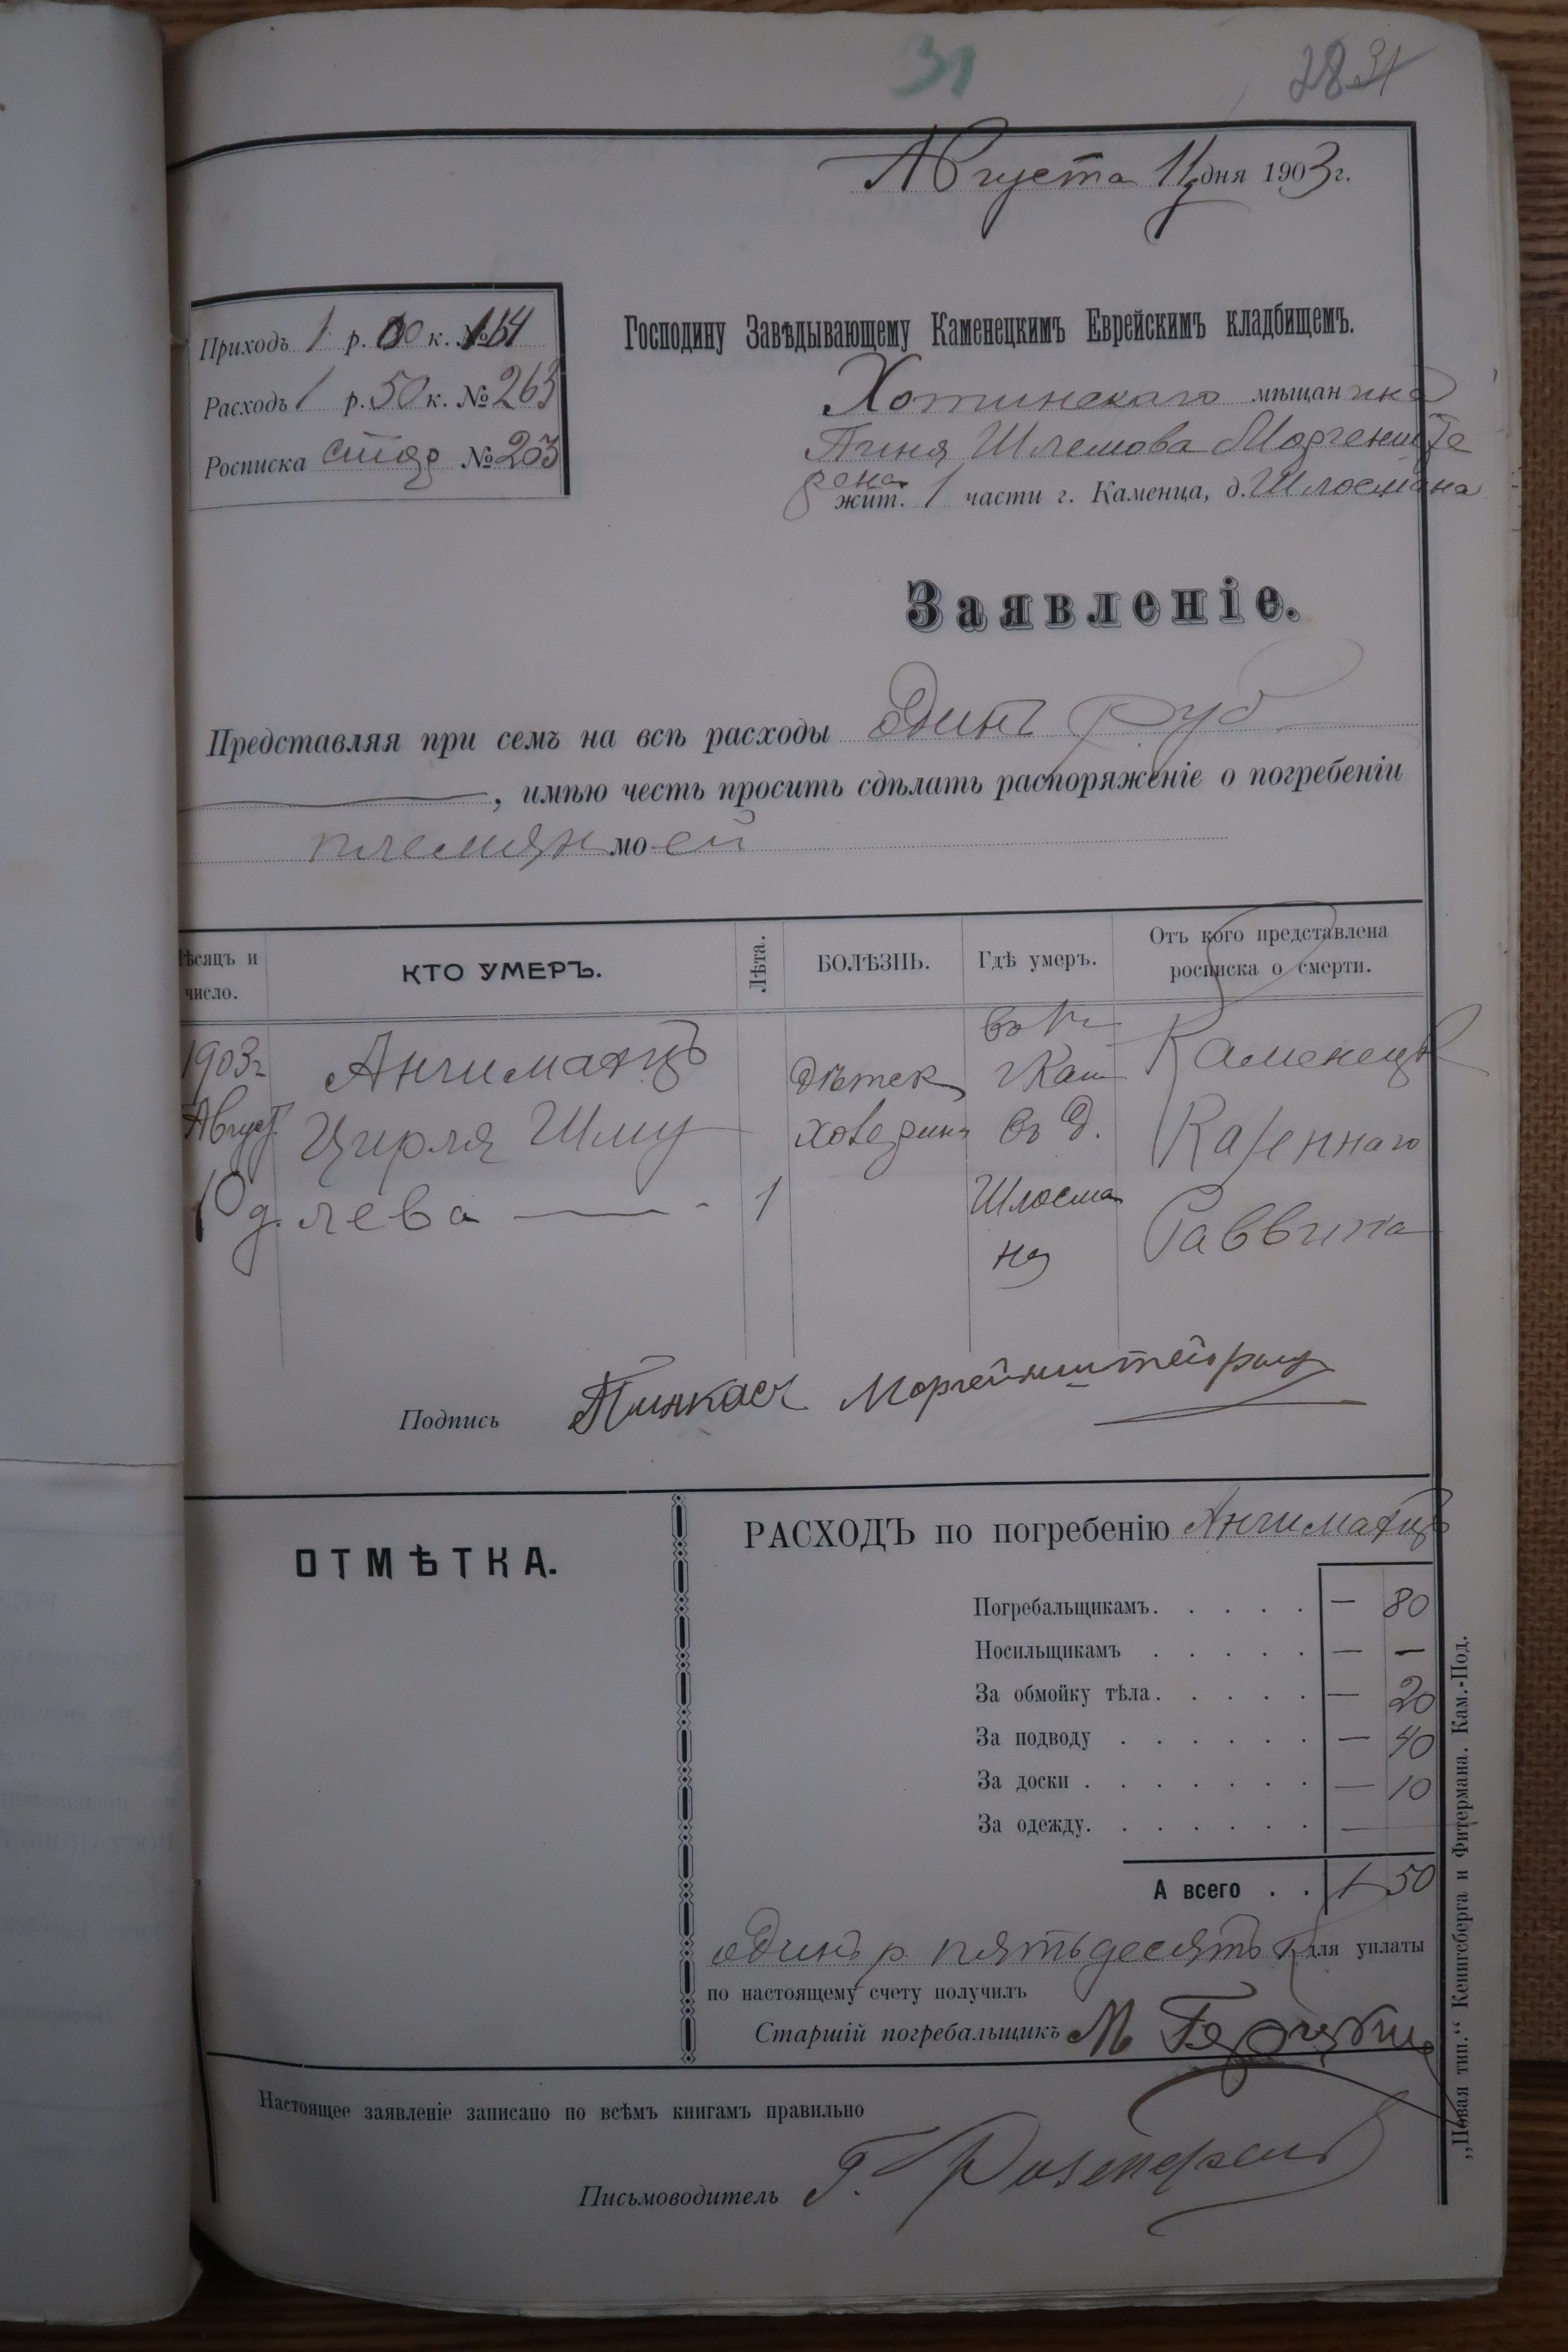 31
28 31
Августа 11 дня 1903 г.
Приходъ 1 р. 00 к. №164
Расходъ 1 р. 50 к. № 263
Росписка № 203
Господину Завѣдывающему Каменецкимъ Еврейскимъ кладбищемъ.
Хотинскаго мѣщанина
Пиня Шлемова Моргенште
рена
жит. 1 части г. Каменца, д. Шлосмана
Заявленіе.
Представляя при семъ на всѣ расходы Одинъ руб
, имѣю честь просить сдѣлать распоряженіе о погребеніи
племян моей
Мѣсяцъ и число.
КТО УМЕРЪ.
Лѣта.
БОЛѢЗНЬ.
Гдѣ умеръ.
Отъ кого представлена росписка о смерти.
1903 г Августа 10 д.
Анчиматцъ
Цирля Шму
лева
1
Дѣтск
въ г. Кам въ д. Шлосма на
Каменецк
Казеннаго
Раввина
Подпись Пинкас Моргейнштейрнъ
ОТМѢТКА.
РАСХОДЪ по погребенію Анчиматцъ
Погребальщикамъ. . . . . — 80
Носильщикамъ . . . . . — —
За обмойку тѣла. . . . . — 20
За подводу . . . . . . — 40
За доски . . . . . . . — 10
За одежду. . . . . . . —
А всего . . 1 50
одинъ р. пятьдесятъ к для уплаты
по настоящему счету получилъ
Старшій погребальщикъ М
Настоящее заявленіе записано по всѣмъ книгамъ правильно
Письмоводитель Г. Розенфельд
„Новая тип.“ Кенигсберга и Фитермана. Кам.-Под.